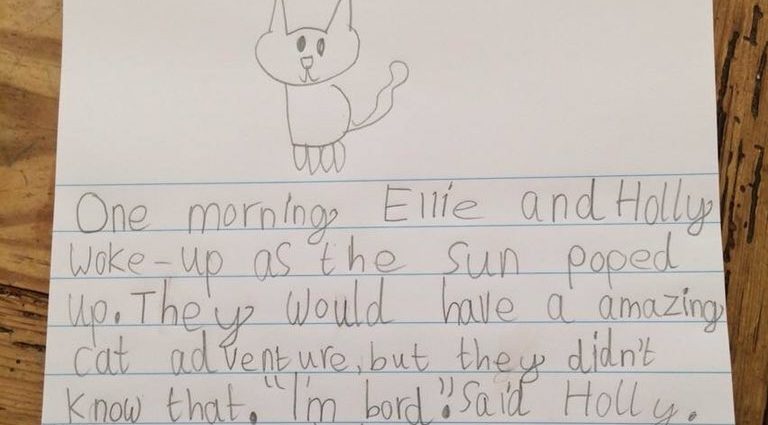 One morning Ellie and Holly
Woke-up as the sun poped
up. They would have a amazing
cat adventure, but they didn't
know that. "I'm bord". Said Holly.